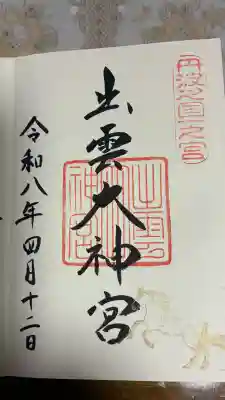 丹波國一之宮
出雲大神宮
出雲大神宮
令和八年四月十二日